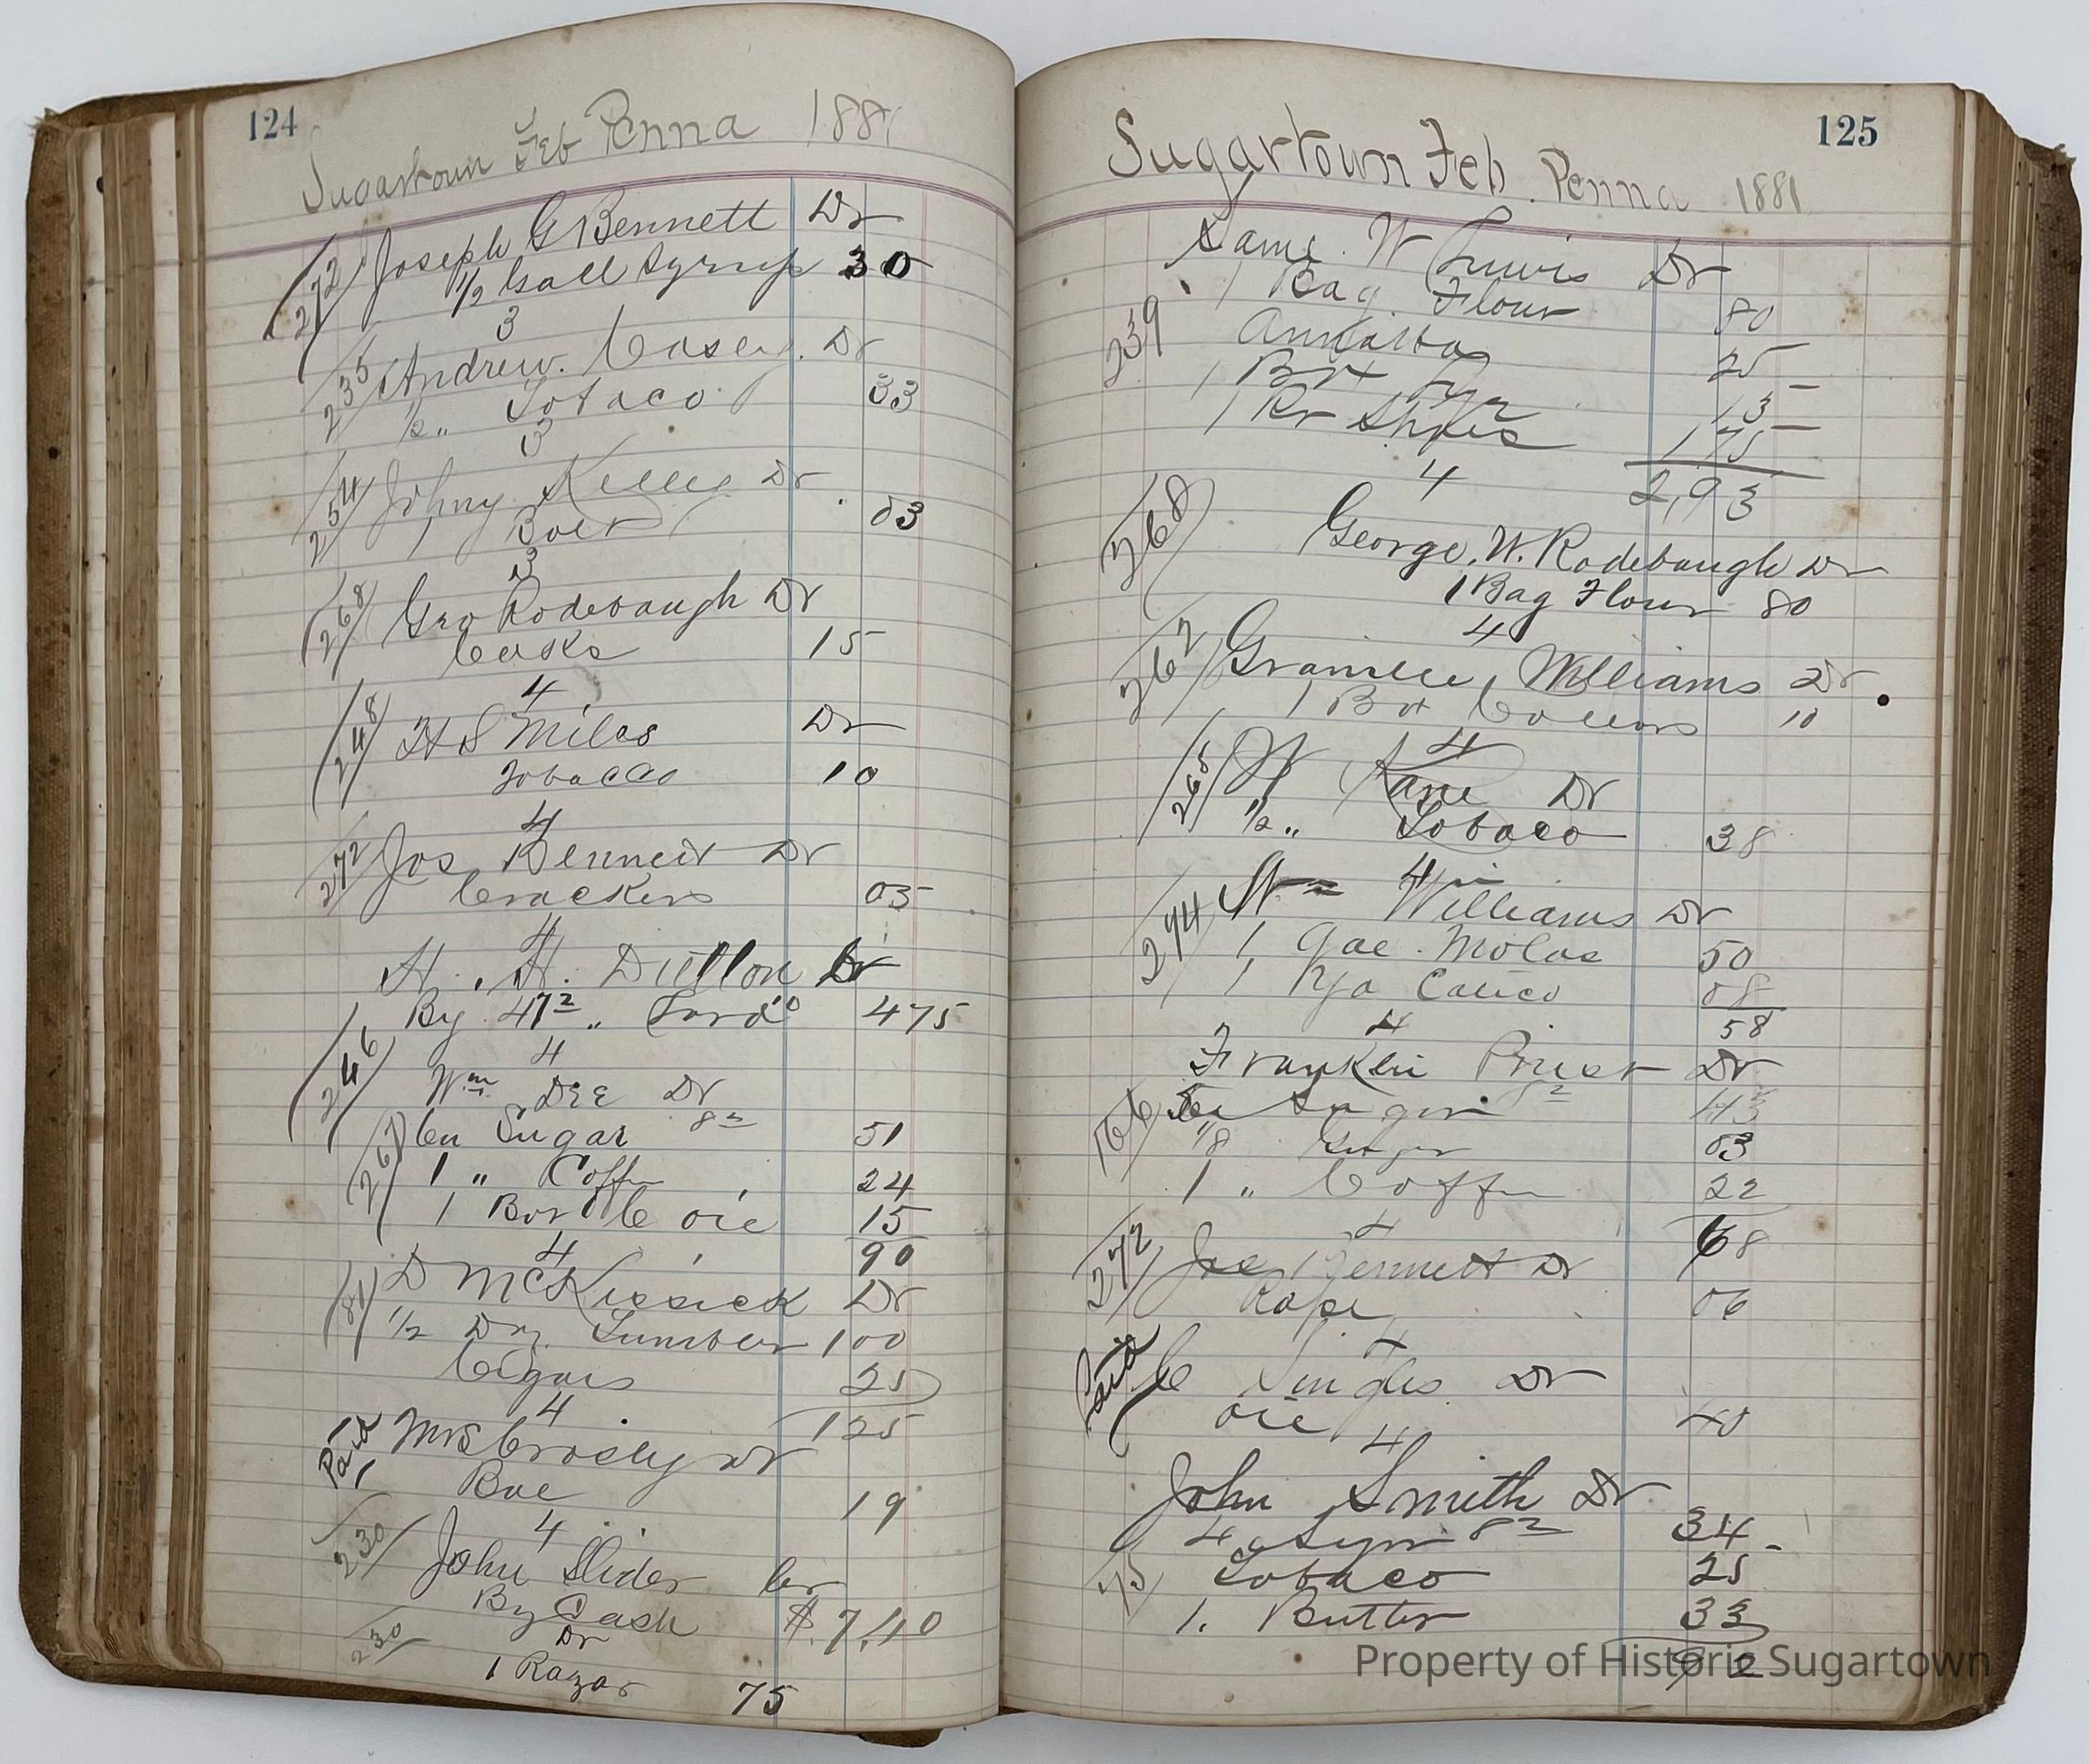 124
Sugartown Feb Penna 1881
272 Joseph G Bennett Dr
1/2 Gall Syrup 30
3
235 Andrew. Casey. Dr
1/2 " Tobaco 33
3
254 Johny Kelley Dr
1 03
3
268 Geo Rodebaugh Dr
Cakes 15
4
248 H S Miles Dr
Tobacco 10
4
272 Jos Bennett Dr
Crackers 05
4
H. H. Dutton Dr
246 By 47 2 " Lard 10 475
4
Wm DEE Dr
267 6 Sugar 8 2 51
1 " Coffee 24
1 Bot C Oil 15
90
4
181 D McKissick Dr
1/2 Dry Lumber 100
Cigars 25
125
4
Paid Mrs Crosley Dr
19
4
230 John Slider Cr
By Cash $ 7,40
230 Dr
1 Razor 75
125
Sugartown Feb. Penna 1881
W Lewis Dr
1 Bag Flour 80
239 25
1 Box 13
1 Pr Shoes 175
2,93
4
268 George. W. Rodebaugh Dr
1 Bag Flour 80
4
267 Williams Dr
1 Box Collars 10
4
265 Kane Dr
1/2 " Tobaco 38
4
294 Wm Williams Dr
1 Gal. Molas 50
1 Yd Calico 08
58
4
Franklin Priest Dr
166 5 Sugar 8 2 43
1/8 03
1 " Coffee 22
68
4
272 Jos Bennett Dr
Rope 06
4
Paid C Dr
Oil 40
4
John Smith Dr
4 Sugar 8 2 34
75 Tobaco 25
1. Butter 33
92
Property of Historic Sugartown